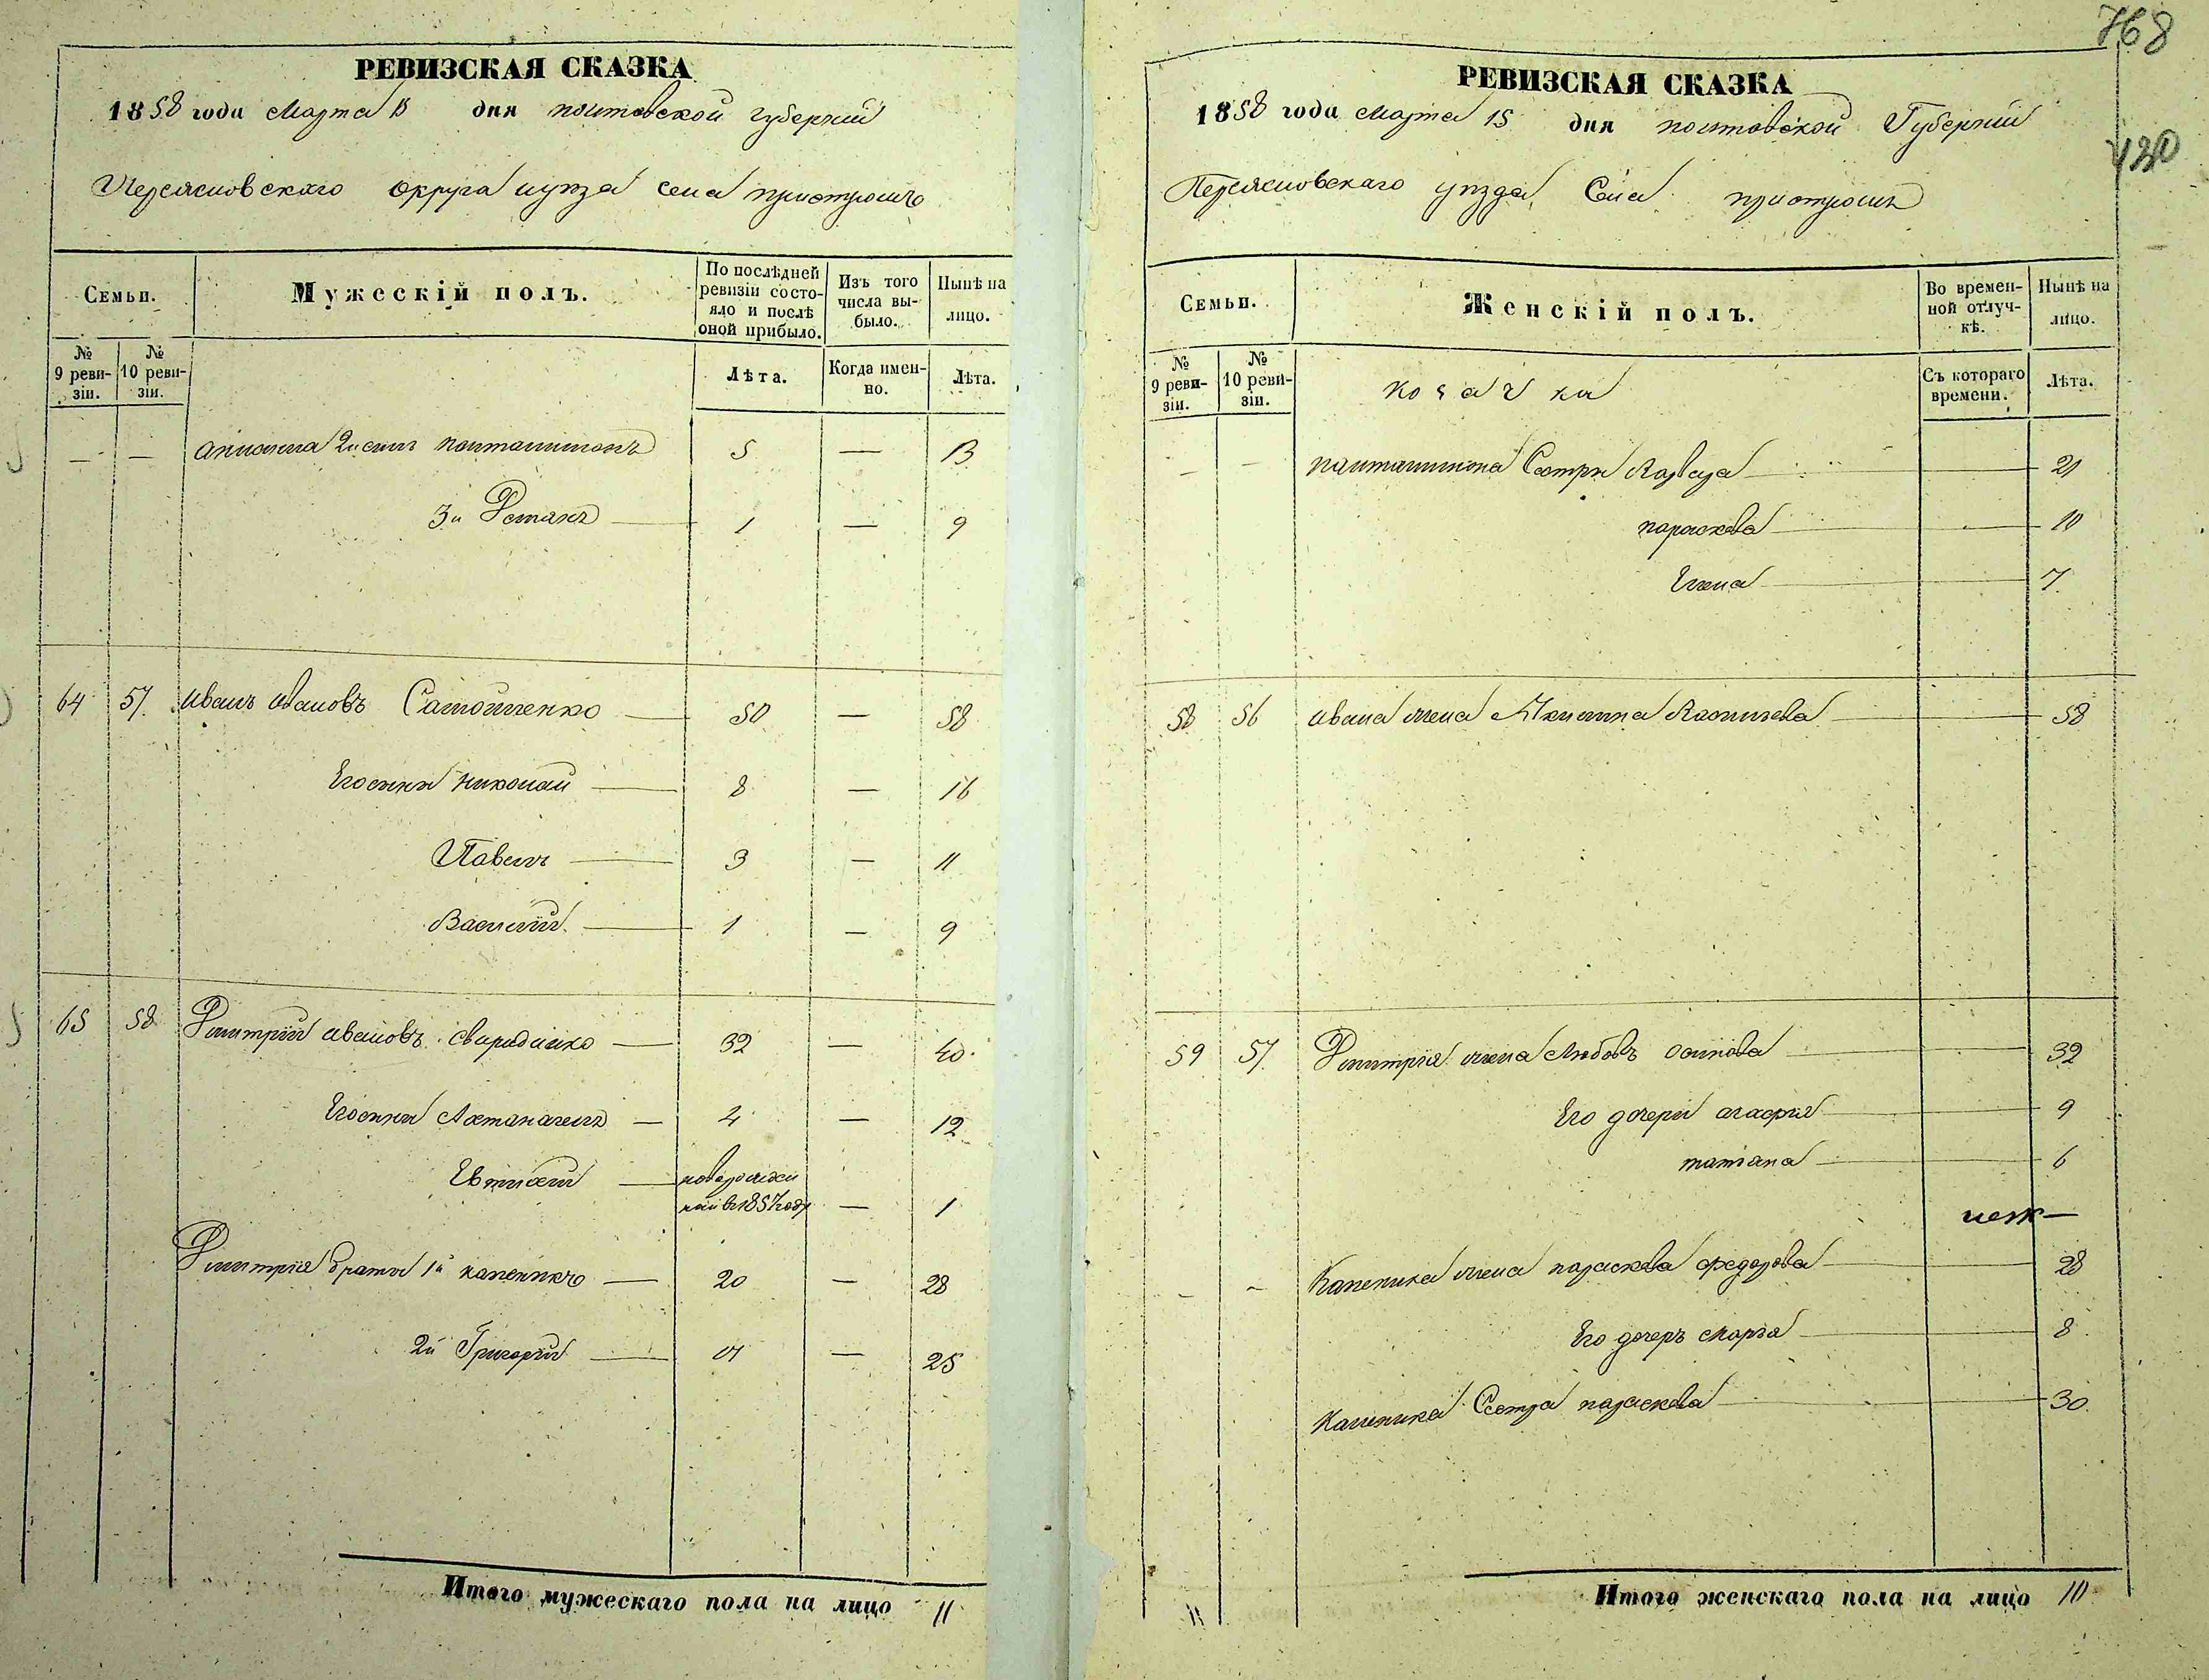 768
430
РЕВИЗСКАЯ СКАЗКА
1858 года Марта 15 дня Полтавской губернии
Переясловскаго округа села Пристромъ
Семьи.
Мужескій полъ.
По послѣдней ревизіи состояло и послѣ оной прибыло.
Изъ того числа выбыло.
Нынѣ на лицо.
№ 9 ревизіи.
№ 10 ревизіи.
Лѣта.
Когда именно.
Лѣта.
— — 2й сынъ Пантелимонъ 5 — 13
3й Романъ 1 — 9
64 57. Иванъ Ивановъ Самойленко 50 — 58
Его сыны Николай 8 — 16
Павелъ 3 — 11
Василій 1 — 9
65 58 Дмитрій Ивановъ Свириденко 32 — 40
Его сыны 4 — 12
Евтихій новорожден
ный въ 1857 году — 1
Дмитрія братья 1й Каленикъ 20 — 28
2й Григорій 17 — 25
Итого мужескаго пола на лицо 11
РЕВИЗСКАЯ СКАЗКА
1858 года Марта 15 дня Полтавской Губерніи
Переясловскаго уѣзда Села Пристромъ
Семьи.
Женскій полъ.
Во временной отлучкѣ.
Нынѣ на лицо.
№ 9 ревизіи.
№ 10 ревизіи.
Съ котораго времени.
Лѣта.
Козачки
— — Пантелимона Сестры Варвара — 21
Параскева — 10
Елена — 7
58 56 Ивана жена Акилина Васильева — 58
59 57. Дмитрія жена Любовь Осипова — 32
Его дочери Агафія 9
Татіана — 6
- - Каленика жена Параскева Федорова — 28
Его дочерь Марья — 8
Каленика Сестра Параскева — 30
Итого женскаго пола на лицо 10
11